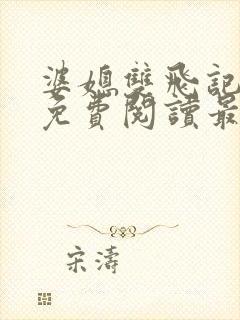 婆媳雙飛記
免費閱讀最
宋濤